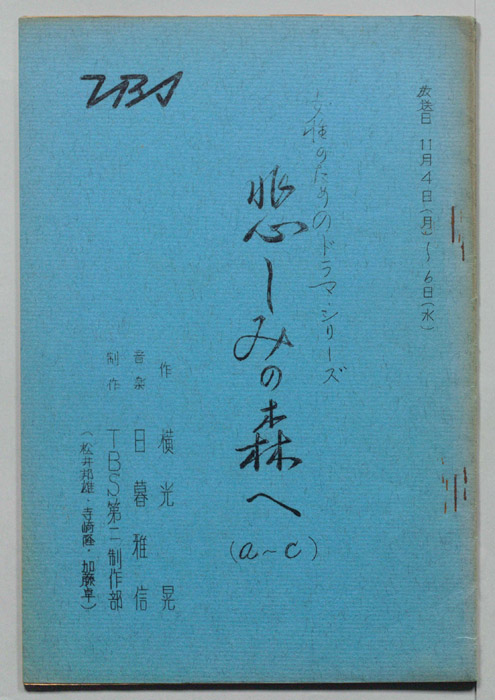 放送日 11月4日(月)~6日(水)
女性のためのドラマ・シリーズ
悲しみの森へ
(a~c)
作 横光 晃
音楽 日暮雅信
制作 TBS第二制作部
(松井邦雄・寺崎隆・加藤卓)
TBS